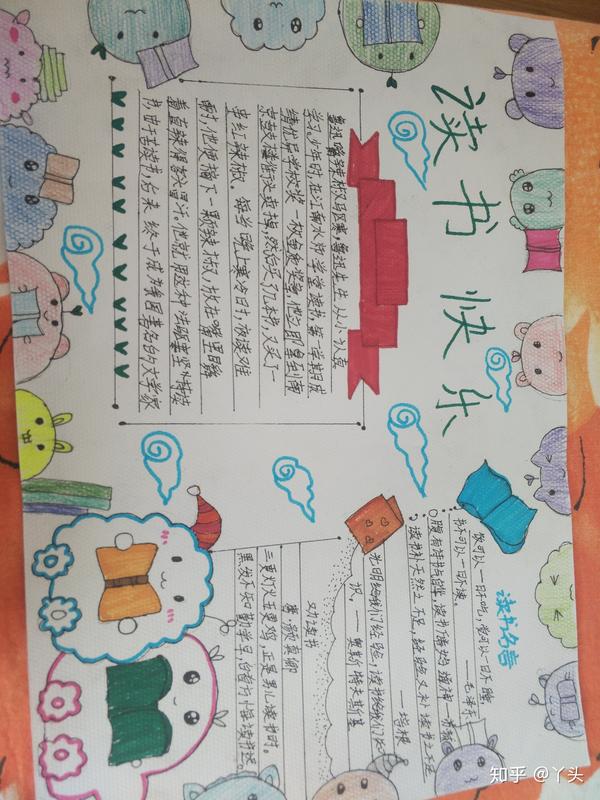 读书快乐
鲁迅嚼辣椒驱寒,鲁迅先生从小认真
学习少年时,在江南水师学堂读书第一学期成
绩优异学校奖一枚金质奖章,他立即拿到南
京鼓楼街头卖掉,然后买了几本书,又买了一
串红辣椒。每当晚上寒冷时,夜读难
耐,他便摘下一颗辣椒,放在嘴里嚼
着直辣得额头冒汗。他就用这种法驱寒坚持读
书,由于苦读书,后来终于成为我国著名的文学家
读书名言
可以一日不吃,可以一日不睡,
书不可以一日不读。——毛泽东
腹有诗书气自华,读书 苏轼
读书补天然之不足,经验又补读书之不足
——培根
光明给我们经验,读书给我们知
识。——奥斯特夫斯基
劝读书
唐.颜真卿
三更灯火五更鸡,正是男儿读书时。
黑发不知勤学早,白首方悔读书迟。
知乎 @丫头